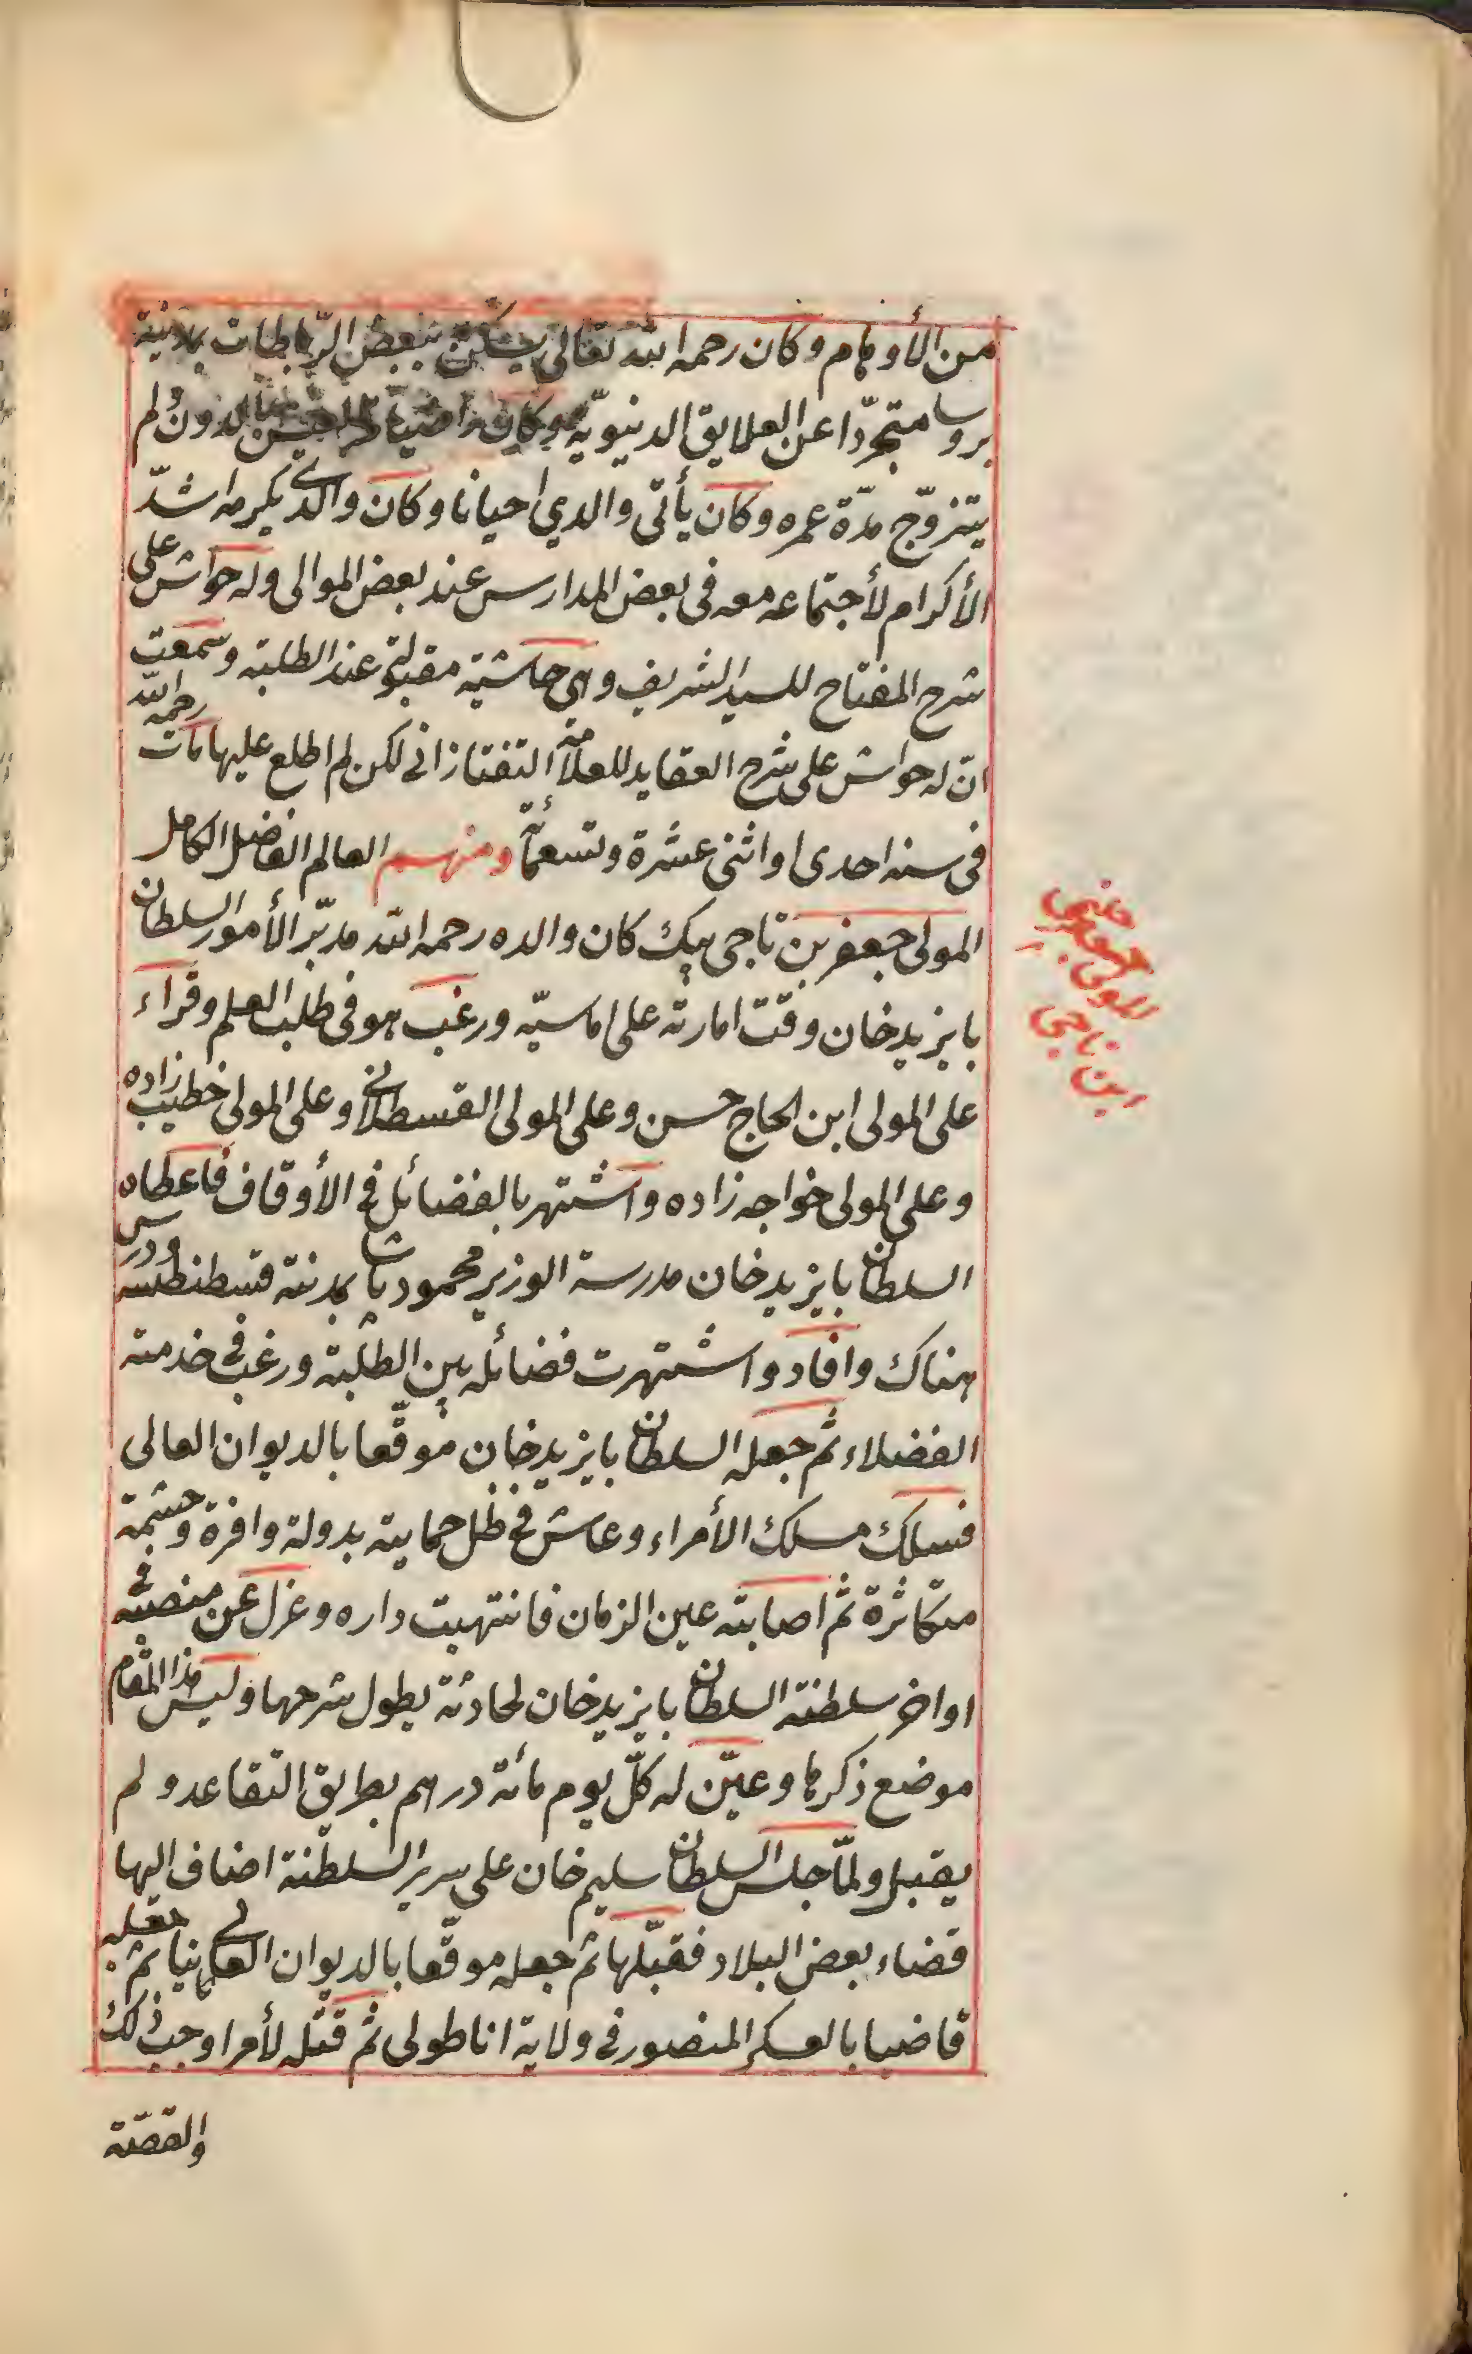 من الأوهام وكان رحمه الله تعالى يسكن ببعض الرّباطات بمدينة
بروسا متجرّدا عن العلايق الدنيويّة وكان راضيا من العيش بالدون لم
يتزوّج مدّة عمره وكان يأتى والدي احيانا وكان والدى يكرمه اشدّ
الأكرام لأجتماعه معه فى بعض المدارس عند بعض الموالى وله حواش على
شرح المفتاح للسيد الشريف وهى حاشية مقبولة عند الطلبة وسمعت
انّ له حواش على شرح العقايد للعلامة التفتازانى لكن لم اطلع عليها مات رحمه الله
فى سنه احدى او اثنى عشرة وتسعمأئة ومنهم العالم الفاضل الكامل
المولى جعفر بن تاجى بيك كان والده رحمه الله مدبّر الأمور السلطان
بايزيدخان وقت امارته على اماسيّه ورغب هو فى طلب العلم وقرأء
على المولى ابن الحاج حسن وعلى المولى القسطلانى وعلى المولى خطيب زاده
وعلى المولى خواجه زاده واشتهر بالفضائل فى الأوقاف فاعطاه
السلطان بايزيدخان مدرسة الوزير محمود پاشا بمدينة قسطنطنيه ودرس
هناك وافاد واشتهرت فضائله بين الطلبة ورغب فى خدمته
الفضلاء ثم جعله السلطان بايزيدخان موقّعا بالديوان العالى
فسلك مسلك الأمراء وعاش فى ظل حمايته بدولة وافرة وحشمة
متكاثرة ثم اصابته عين الزمان فانتهبت داره وعزل عن منصبه فى
اواخر سلطنة السلطان بايزيدخان لحادثة يطول شرحها وليس هذا المقام
موضع ذكرها وعيّن له كلّ يوم مائة درهم بطريق التقاعد ولم
يقبل ولمّا جلس السلطان سليم خان على سرير السلطنة اضاف اليها
قضاء بعض البلاد فقبّلها ثم جعله موقّعا بالديوان العالى ثانيا ثم جعله
قاضيا بالعسكر المنصور فى ولاية اناطولى ثم قتله لأمر اوجب ذلك
والقصّة
المولى
ابن تاجى